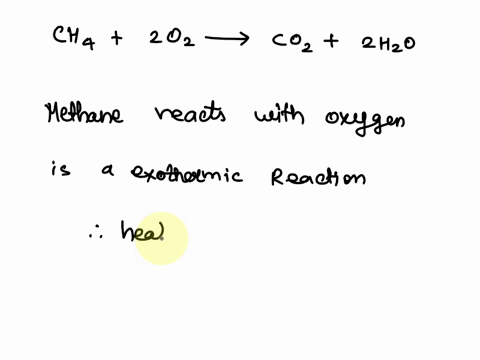 CH₄ + 2O₂ → CO₂ + 2H₂O
Methane reacts with oxygen
is a exothermic Reaction
∴ heat